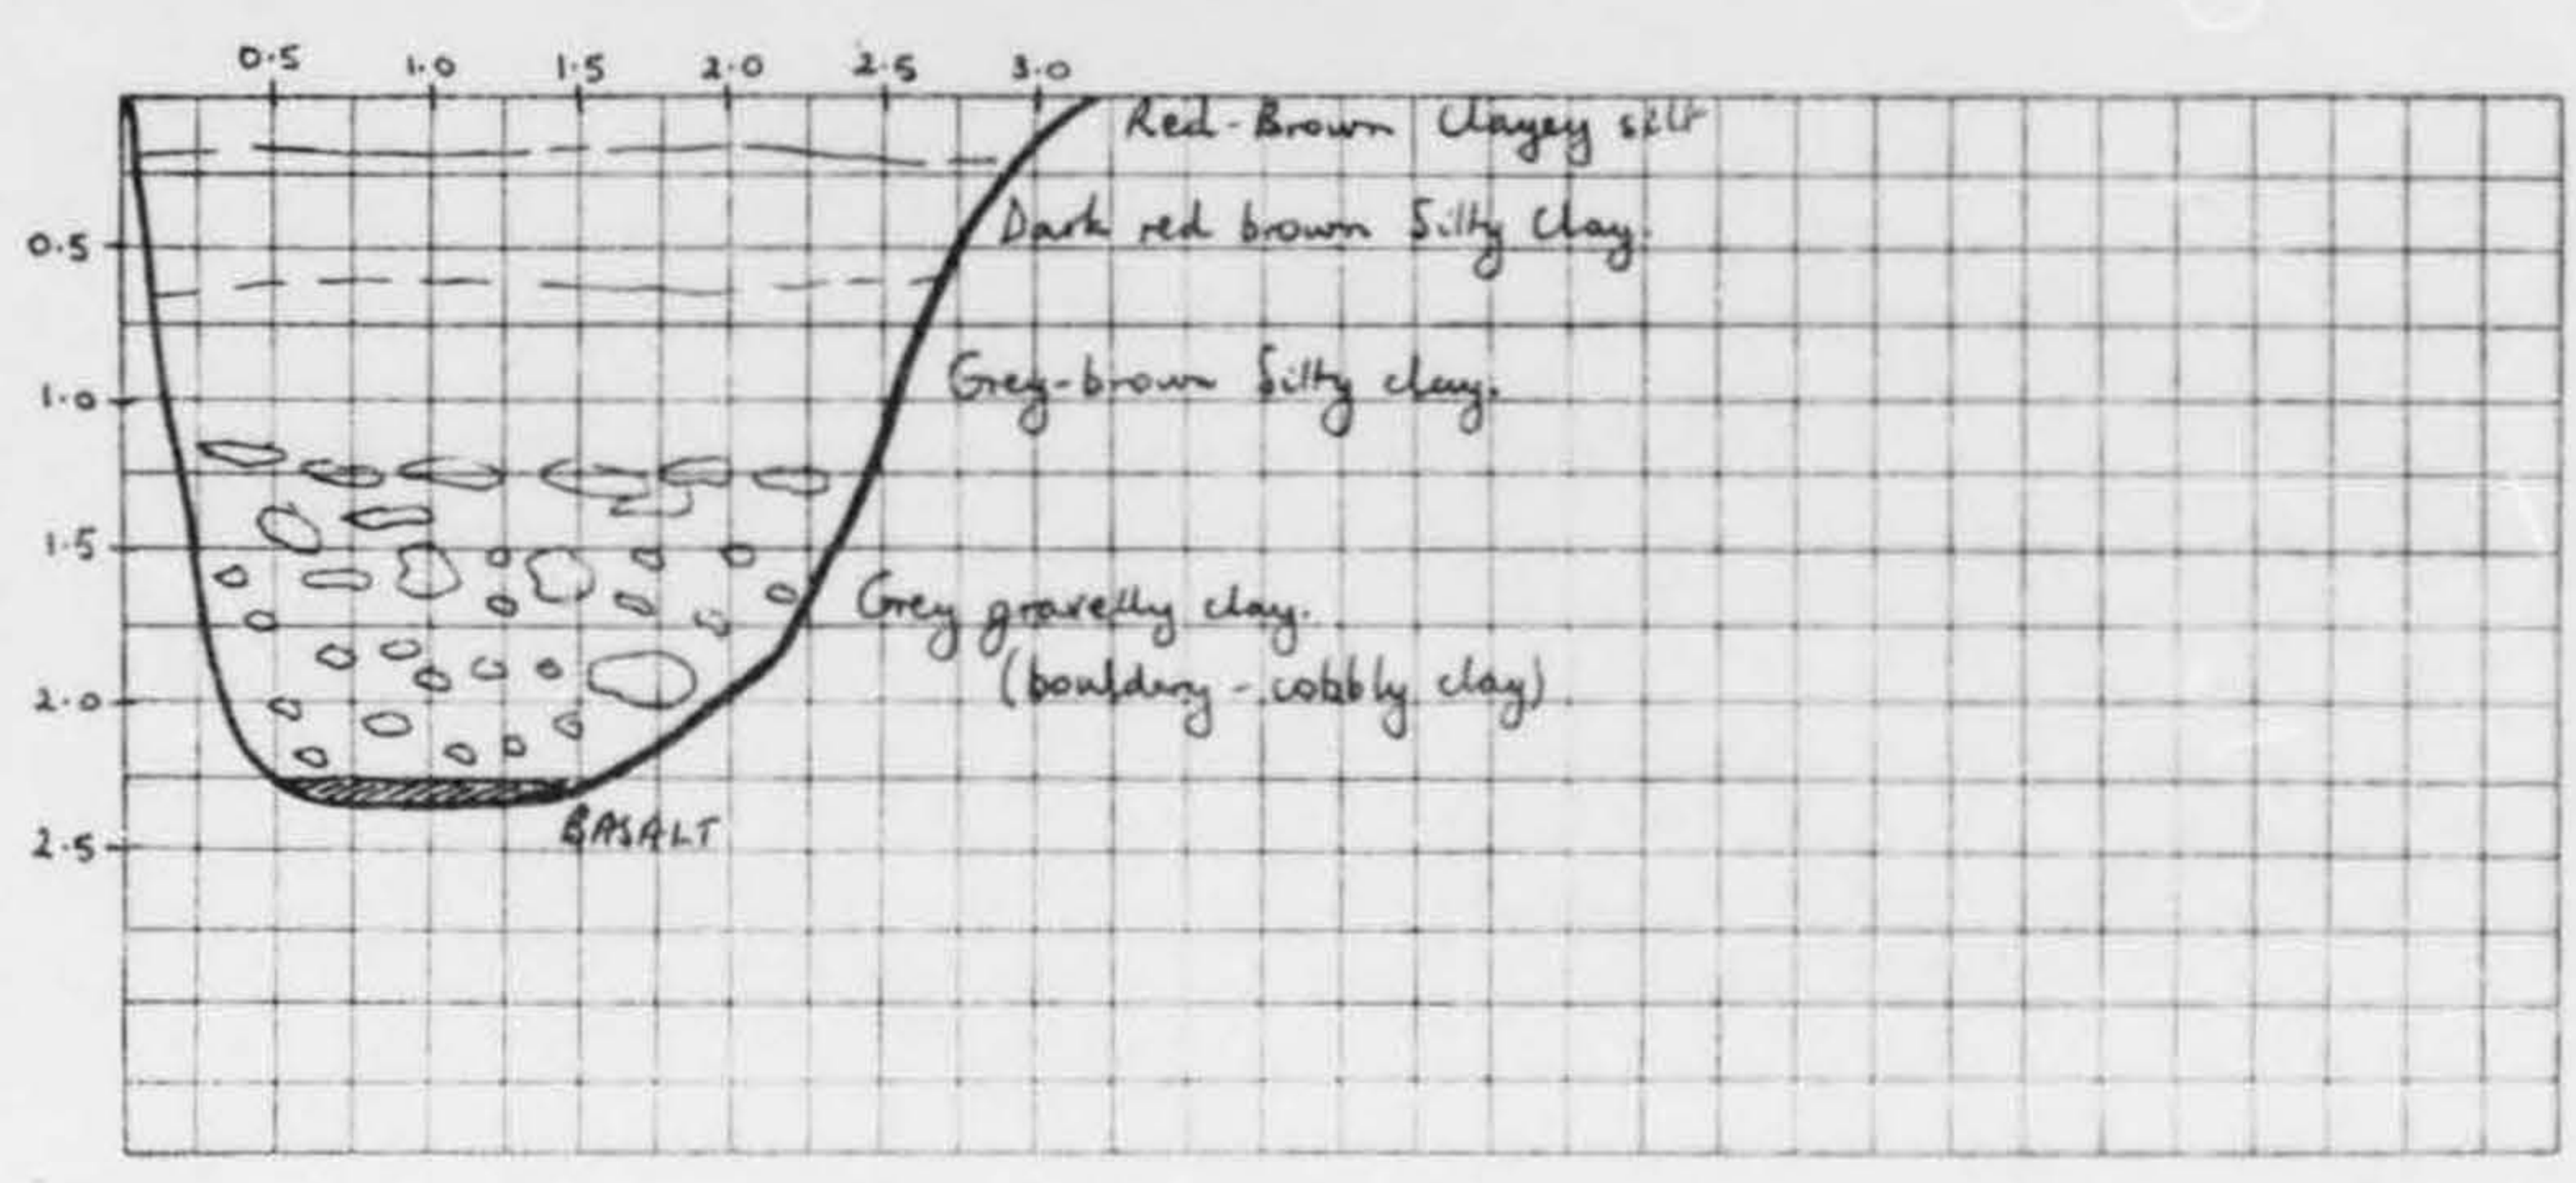 0.5 1.0 1.5 2.0 2.5 3.0
Red-Brown Clayey silt
0.5
Dark red brown Silty Clay.
1.0
Grey-brown Silty clay.
1.5
Grey gravelly clay.
(bouldery - cobbly clay)
2.0
BASALT
2.5